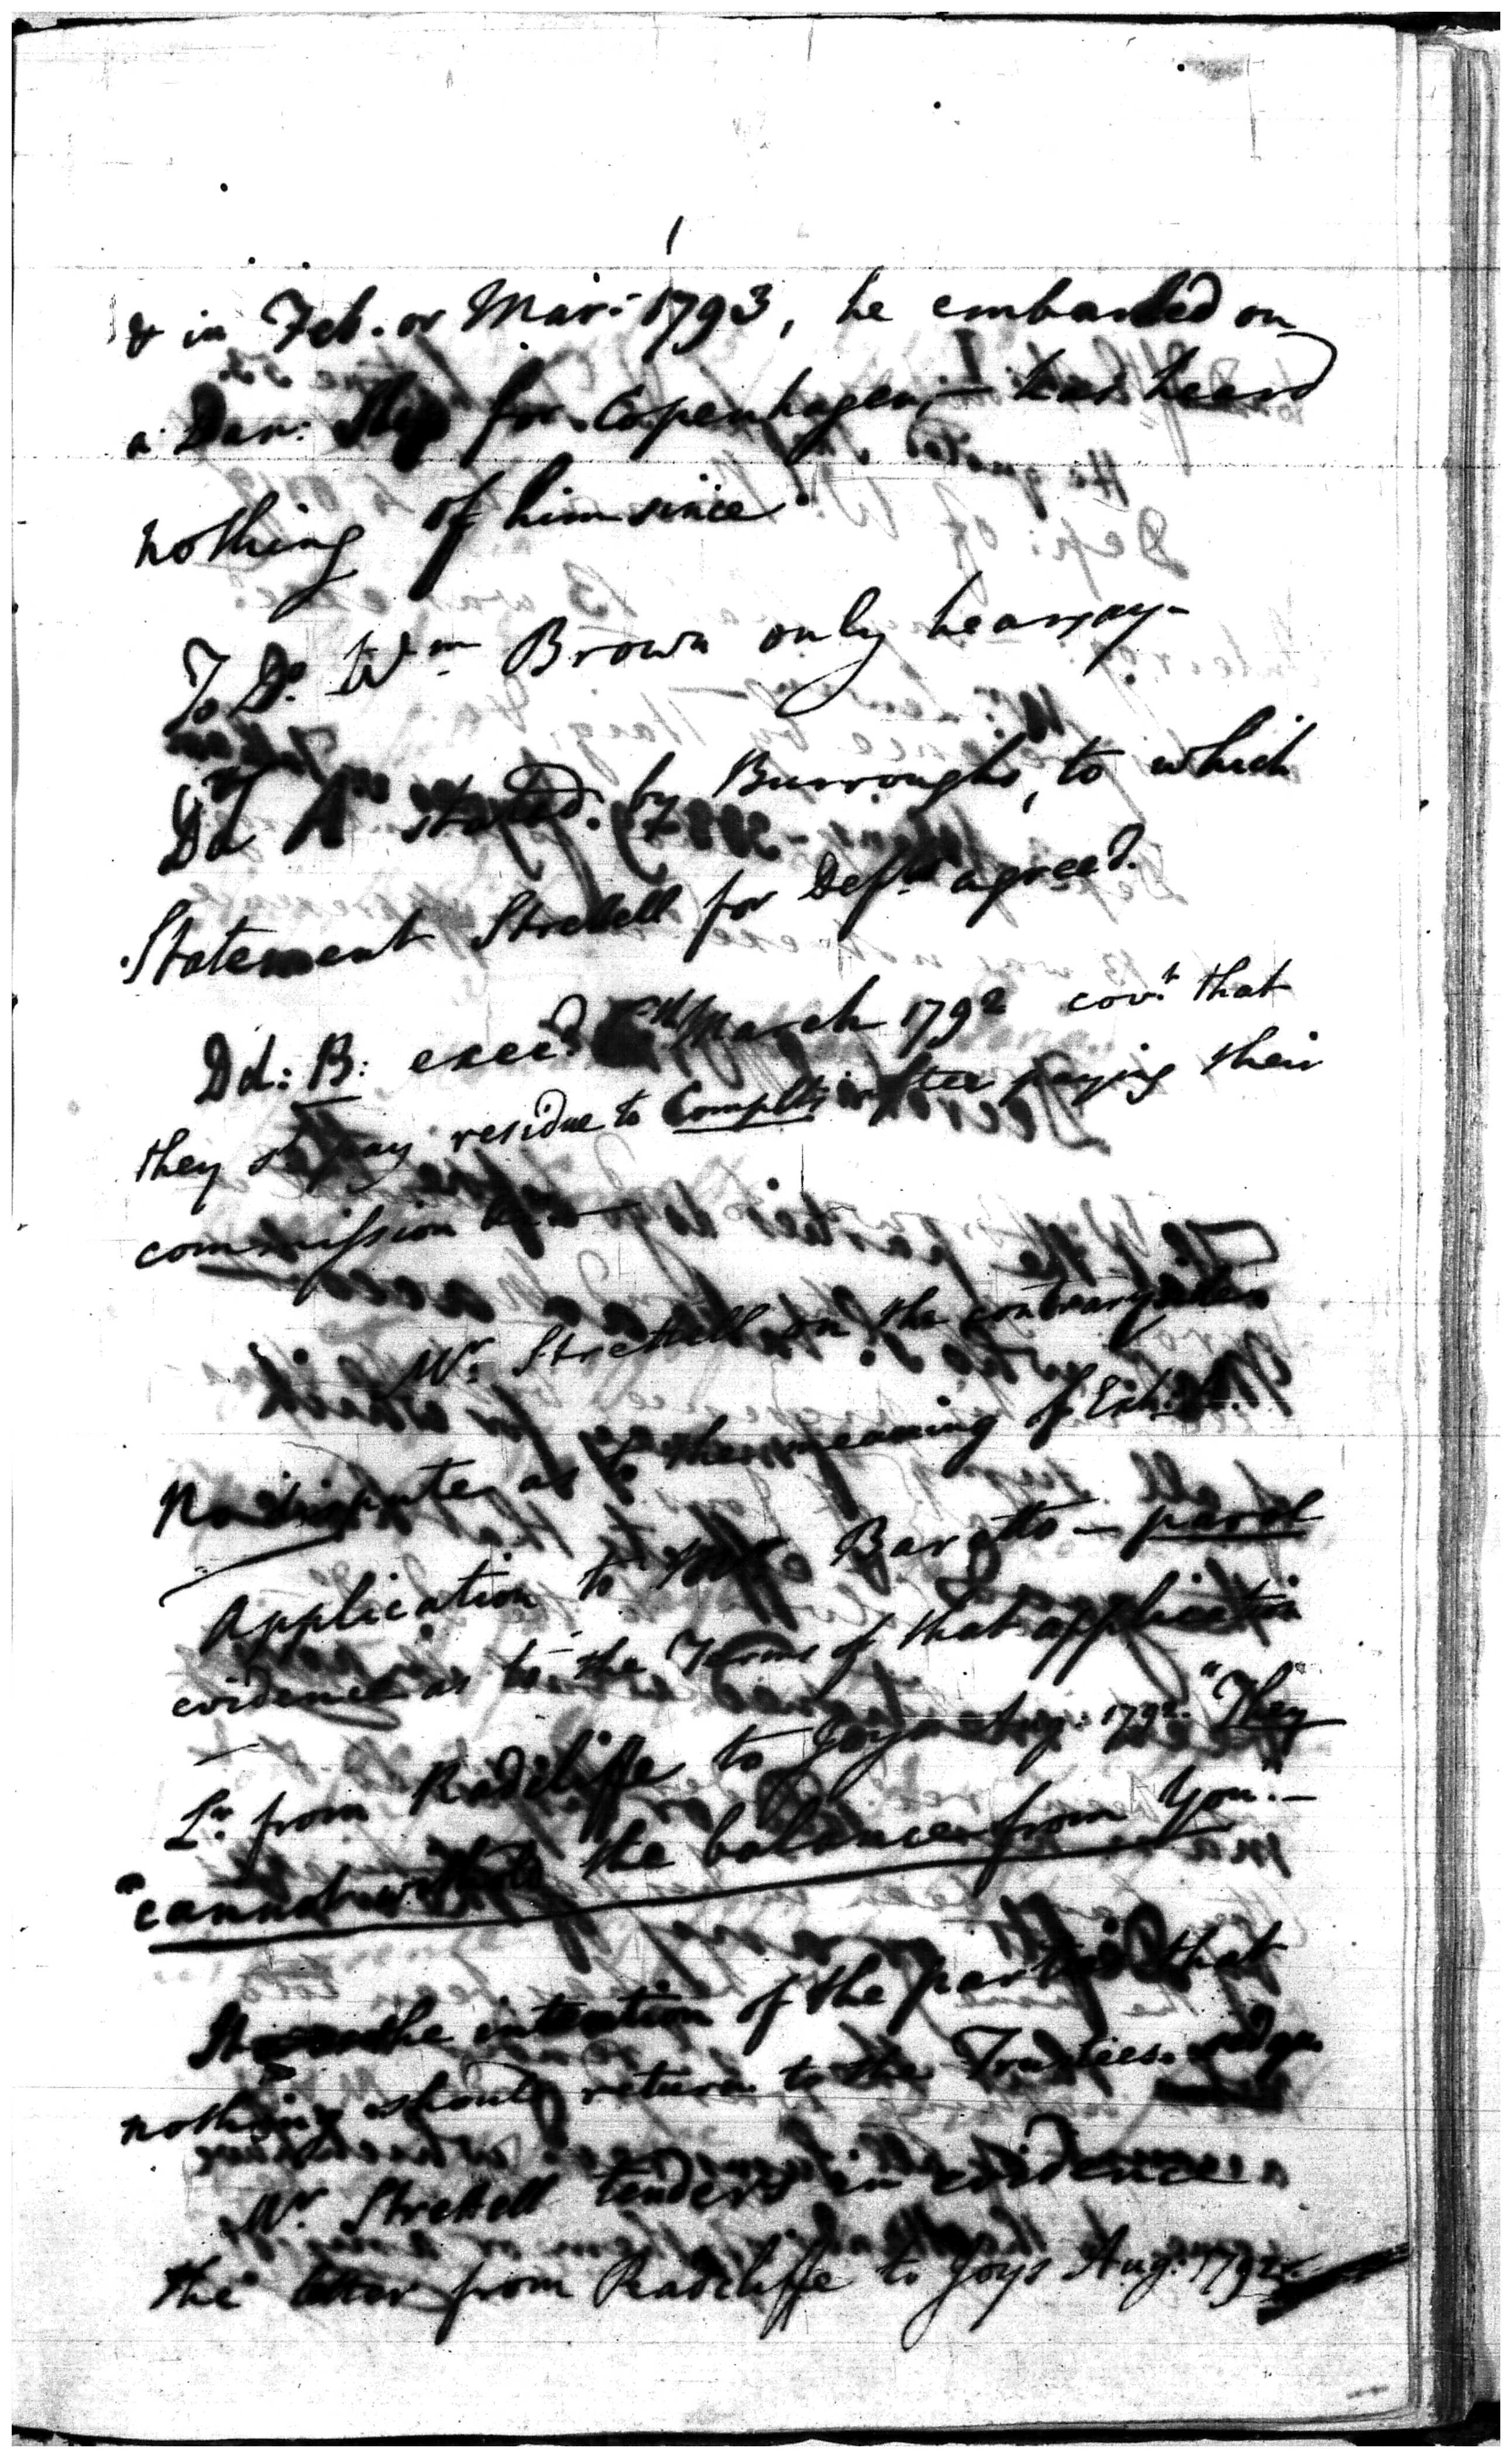 & in Feb. or Mar: 1793, he embarked on
a Dan: Ship for Copenhagen, – has heard
nothing of him since.
To Do. Wm Brown only hearsay –
Dd A stated by Burroughs, to which
Statement Strettell for Defts agreed.
Dd: B: exec.d March 1792 cov.t that
they sd pay residue to Complts after paying their
commission
Mr. Strettell on the contrary side
No dispute as to the meaning of Exh: A.
Application to Baretto – parol
evidence as to the Terms of that application
Lr. from Radcliffe to Joys Aug: 1792. "They
"cannot the balance from You. –
the intention of the parties that
nothing should return to the Trustees.
Mr. Strettell tenders in evidence
the letter from Radcliffe to Joys Aug: 1792